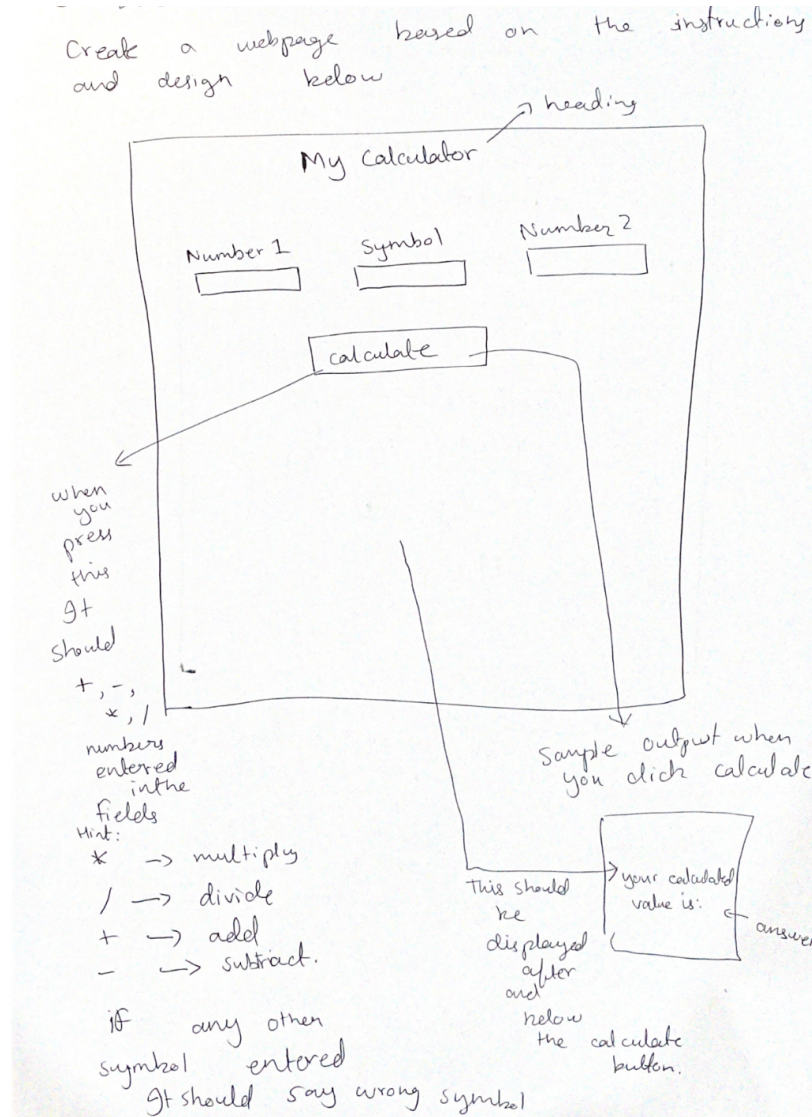 Create a webpage based on the instructions
and design below
heading
My Calculator
Number 1
Symbol
Number 2
calculate
when
you
press
this
It
should
+, -,
*, /
numbers
entered
in the
fields
Hint:
* -> multiply
/ -> divide
+ -> add
- -> subtract.
if any other
symbol entered
It should say wrong symbol
Sample output when
you click calculate
This should
be
displayed
after
and
below
the calculate
button.
your calculated
value is:
answer